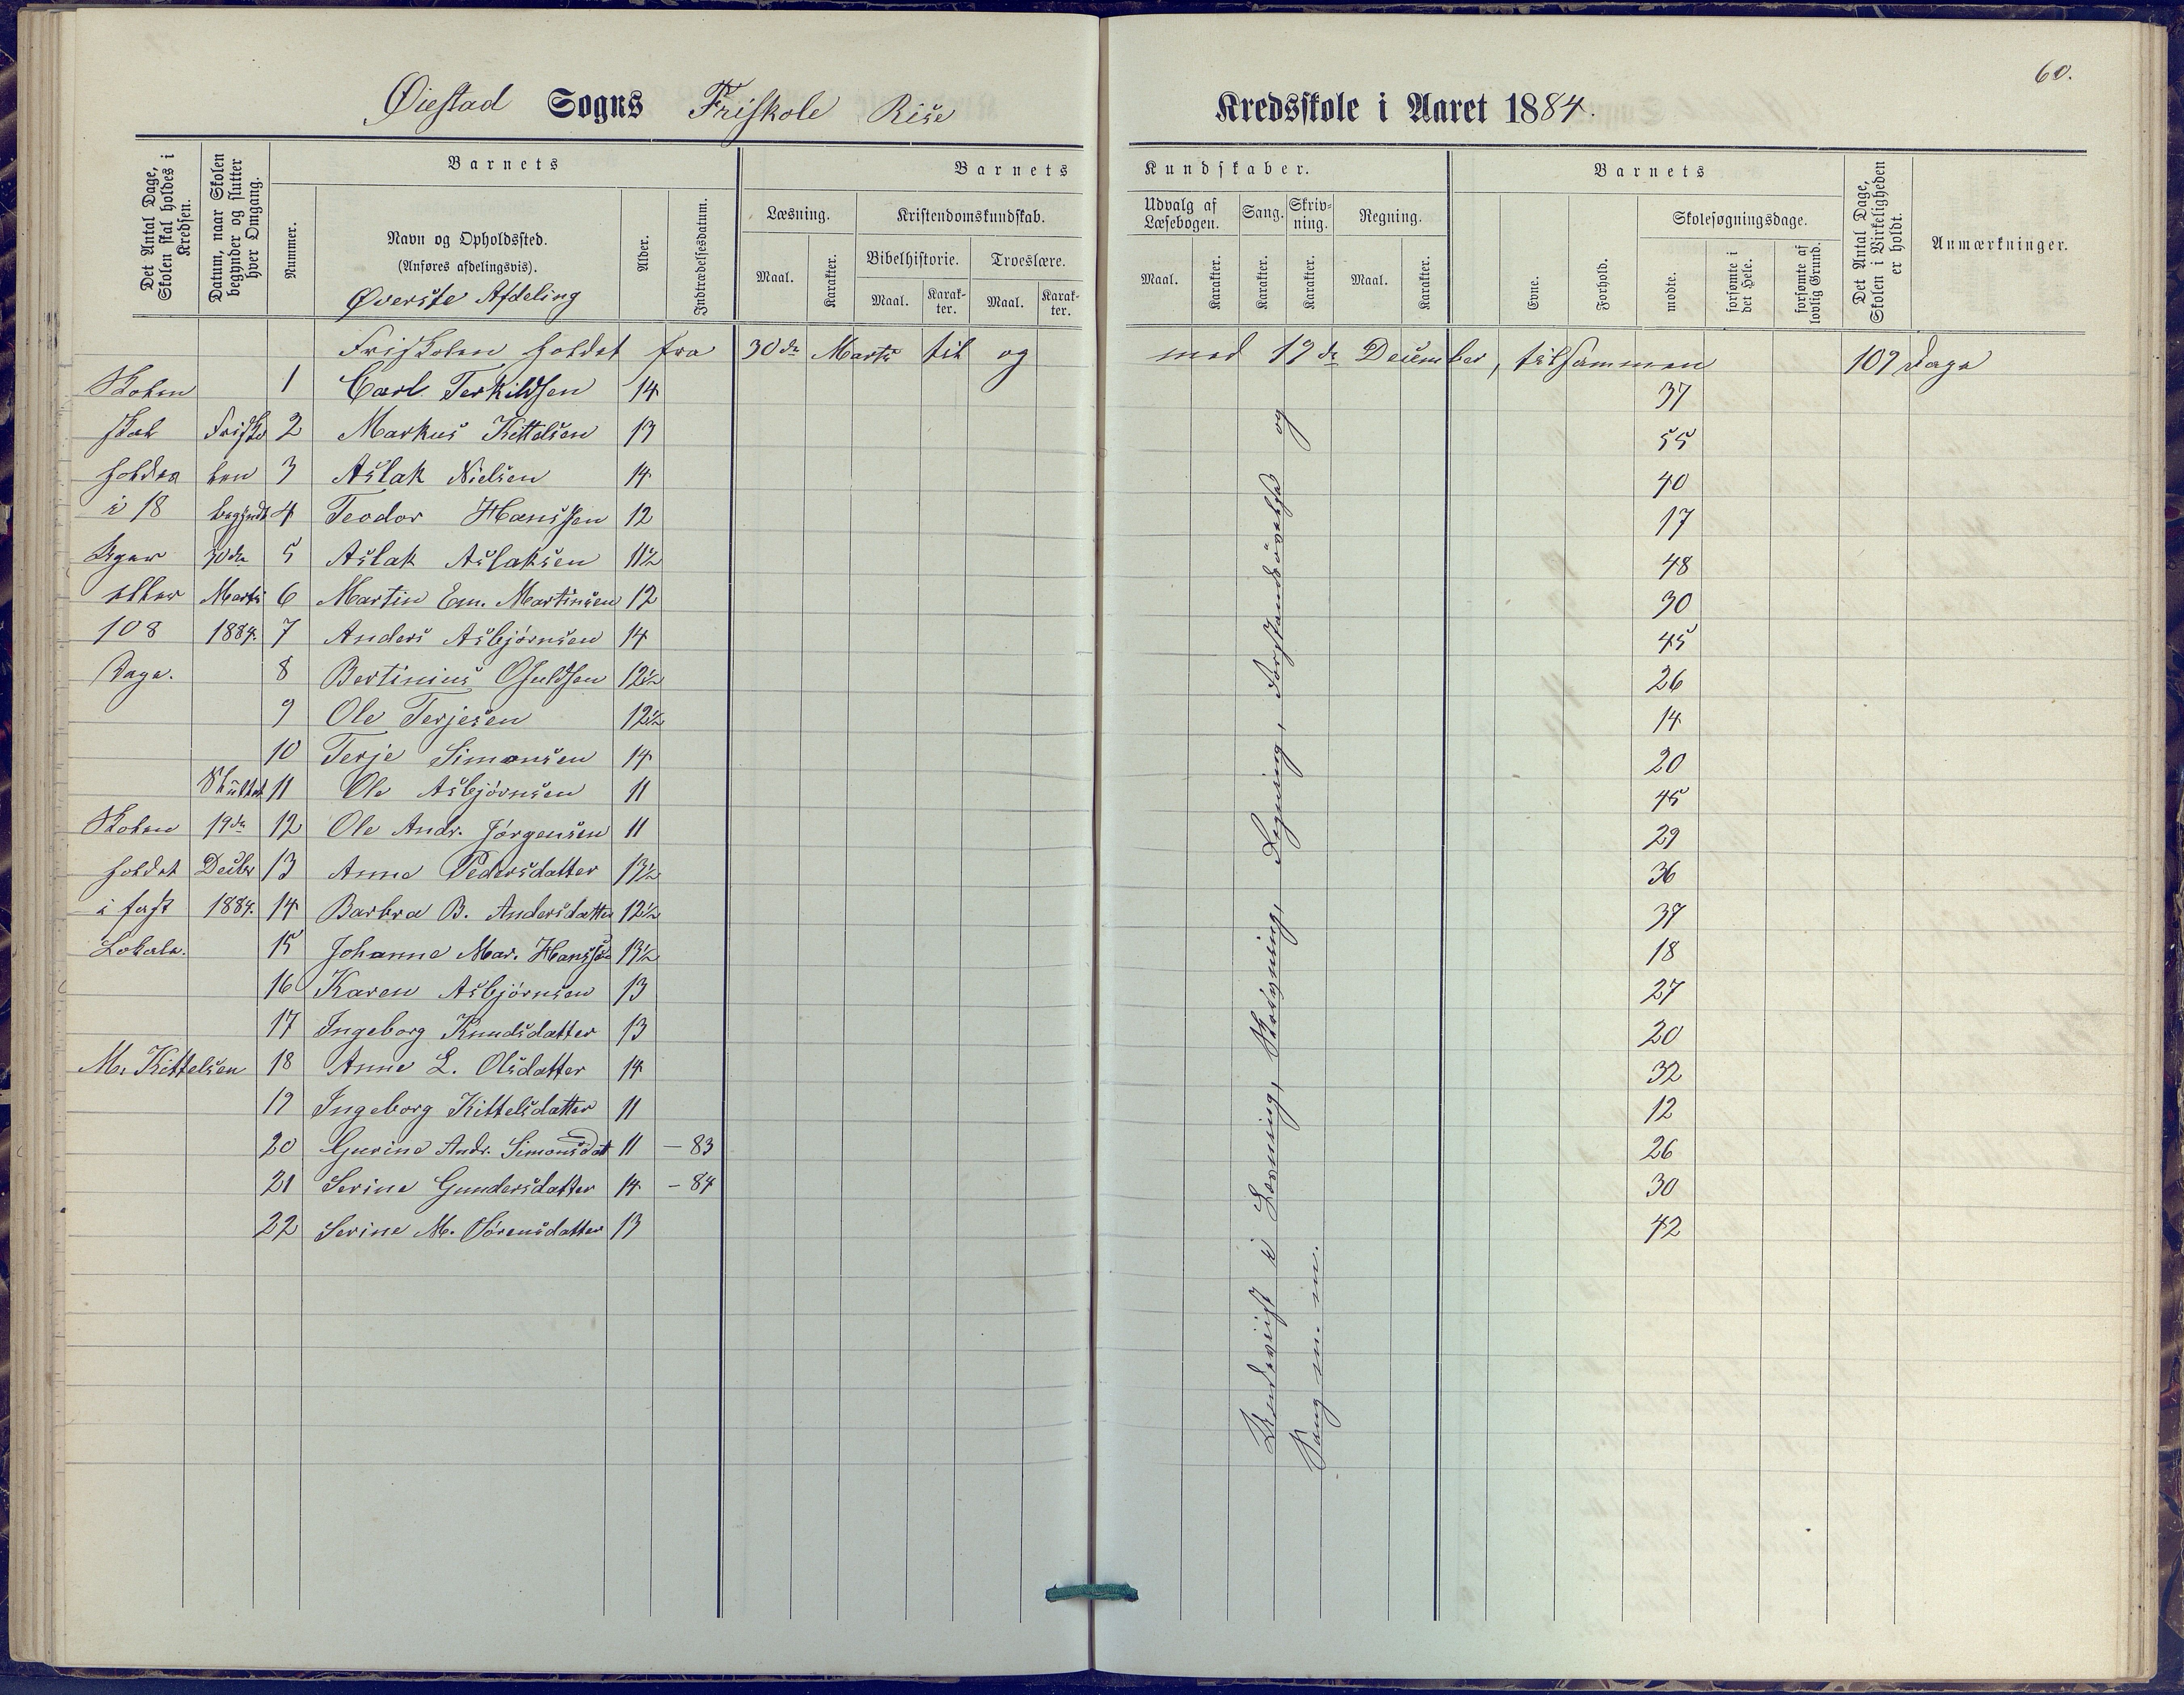 60.
Øiestad Sogns Friskole Rise Kredsskole i Aaret 1884.
Det Antal Dage, Skolen skal holdes i Kredsen.
Datum, naar Skolen begynder og slutter hver Omgang.
Barnets
Nummer.
Navn og Opholdssted.
(Anføres afdelingsvis).
Øverste Afdeling
Alder.
Indtrædelsesdatum.
Barnets Kundskaber.
Læsning.
Maal.
Karakter.
Kristendomskundskab.
Bibelhistorie.
Maal.
Karakter.
Troeslære.
Maal.
Karakter.
Udvalg af Læsebogen.
Maal.
Karakter.
Sang.
Karakter.
Skrivning.
Karakter.
Regning.
Maal.
Karakter.
Barnets
Evne.
Forhold.
Skolesøgningsdage.
mødte.
forsømte i det Hele.
forsømte af lovlig Grund.
Det Antal Dage, Skolen i Virkeligheden er holdt.
Anmærkninger.
Friskolen holdet fra 30de Marts til og med 19de December, tilsammen 109 Dage
Skolen 1 Carl Terkildsen 14 37
skal Frisko 2 Markus Kittelsen 13 55
holdes len 3 Aslak Nielsen 14 40
i 18 begyndt 4 Teodor Hanssen 12 17
Uger 30de 5 Aslak Aslaksen 11½ 48
eller Marts 6 Martin Em. Martinsen 12 30
108 1884. 7 Anders Asbjørnsen 14 45
Dage. 8 Bertinius Osuldsen 12½ 26
9 Ole Terjesen 12½ 14
10 Terje Simonsen 14 20
Sluttet 11 Ole Asbjørnsen 11 45
Skolen 19de 12 Ole Andr. Jørgensen 11 29
holdet Decbr 13 Anne Pedersdatter 13½ 36
i fast 1884. 14 Barbra B. Andersdatter 12½ 37
Lokale. 15 Johanne Mar. Hanss 13½ 18
16 Karen Asbjørnsen 13 27
17 Ingeborg Knudsdatter 13 20
M. Kittelsen 18 Anne L. Olsdatter 14 32
19 Ingeborg Kittelsdatter 11 12
20 Gurine Andr. Simonsdat 11 — 83 26
21 Serine Gundersdatter 14 — 84 30
22 Serine M. Sørensdatter 13 42
Undervist i Læsning, Skrivning, Regning, Forstandsøvelse og
Sang m. m.